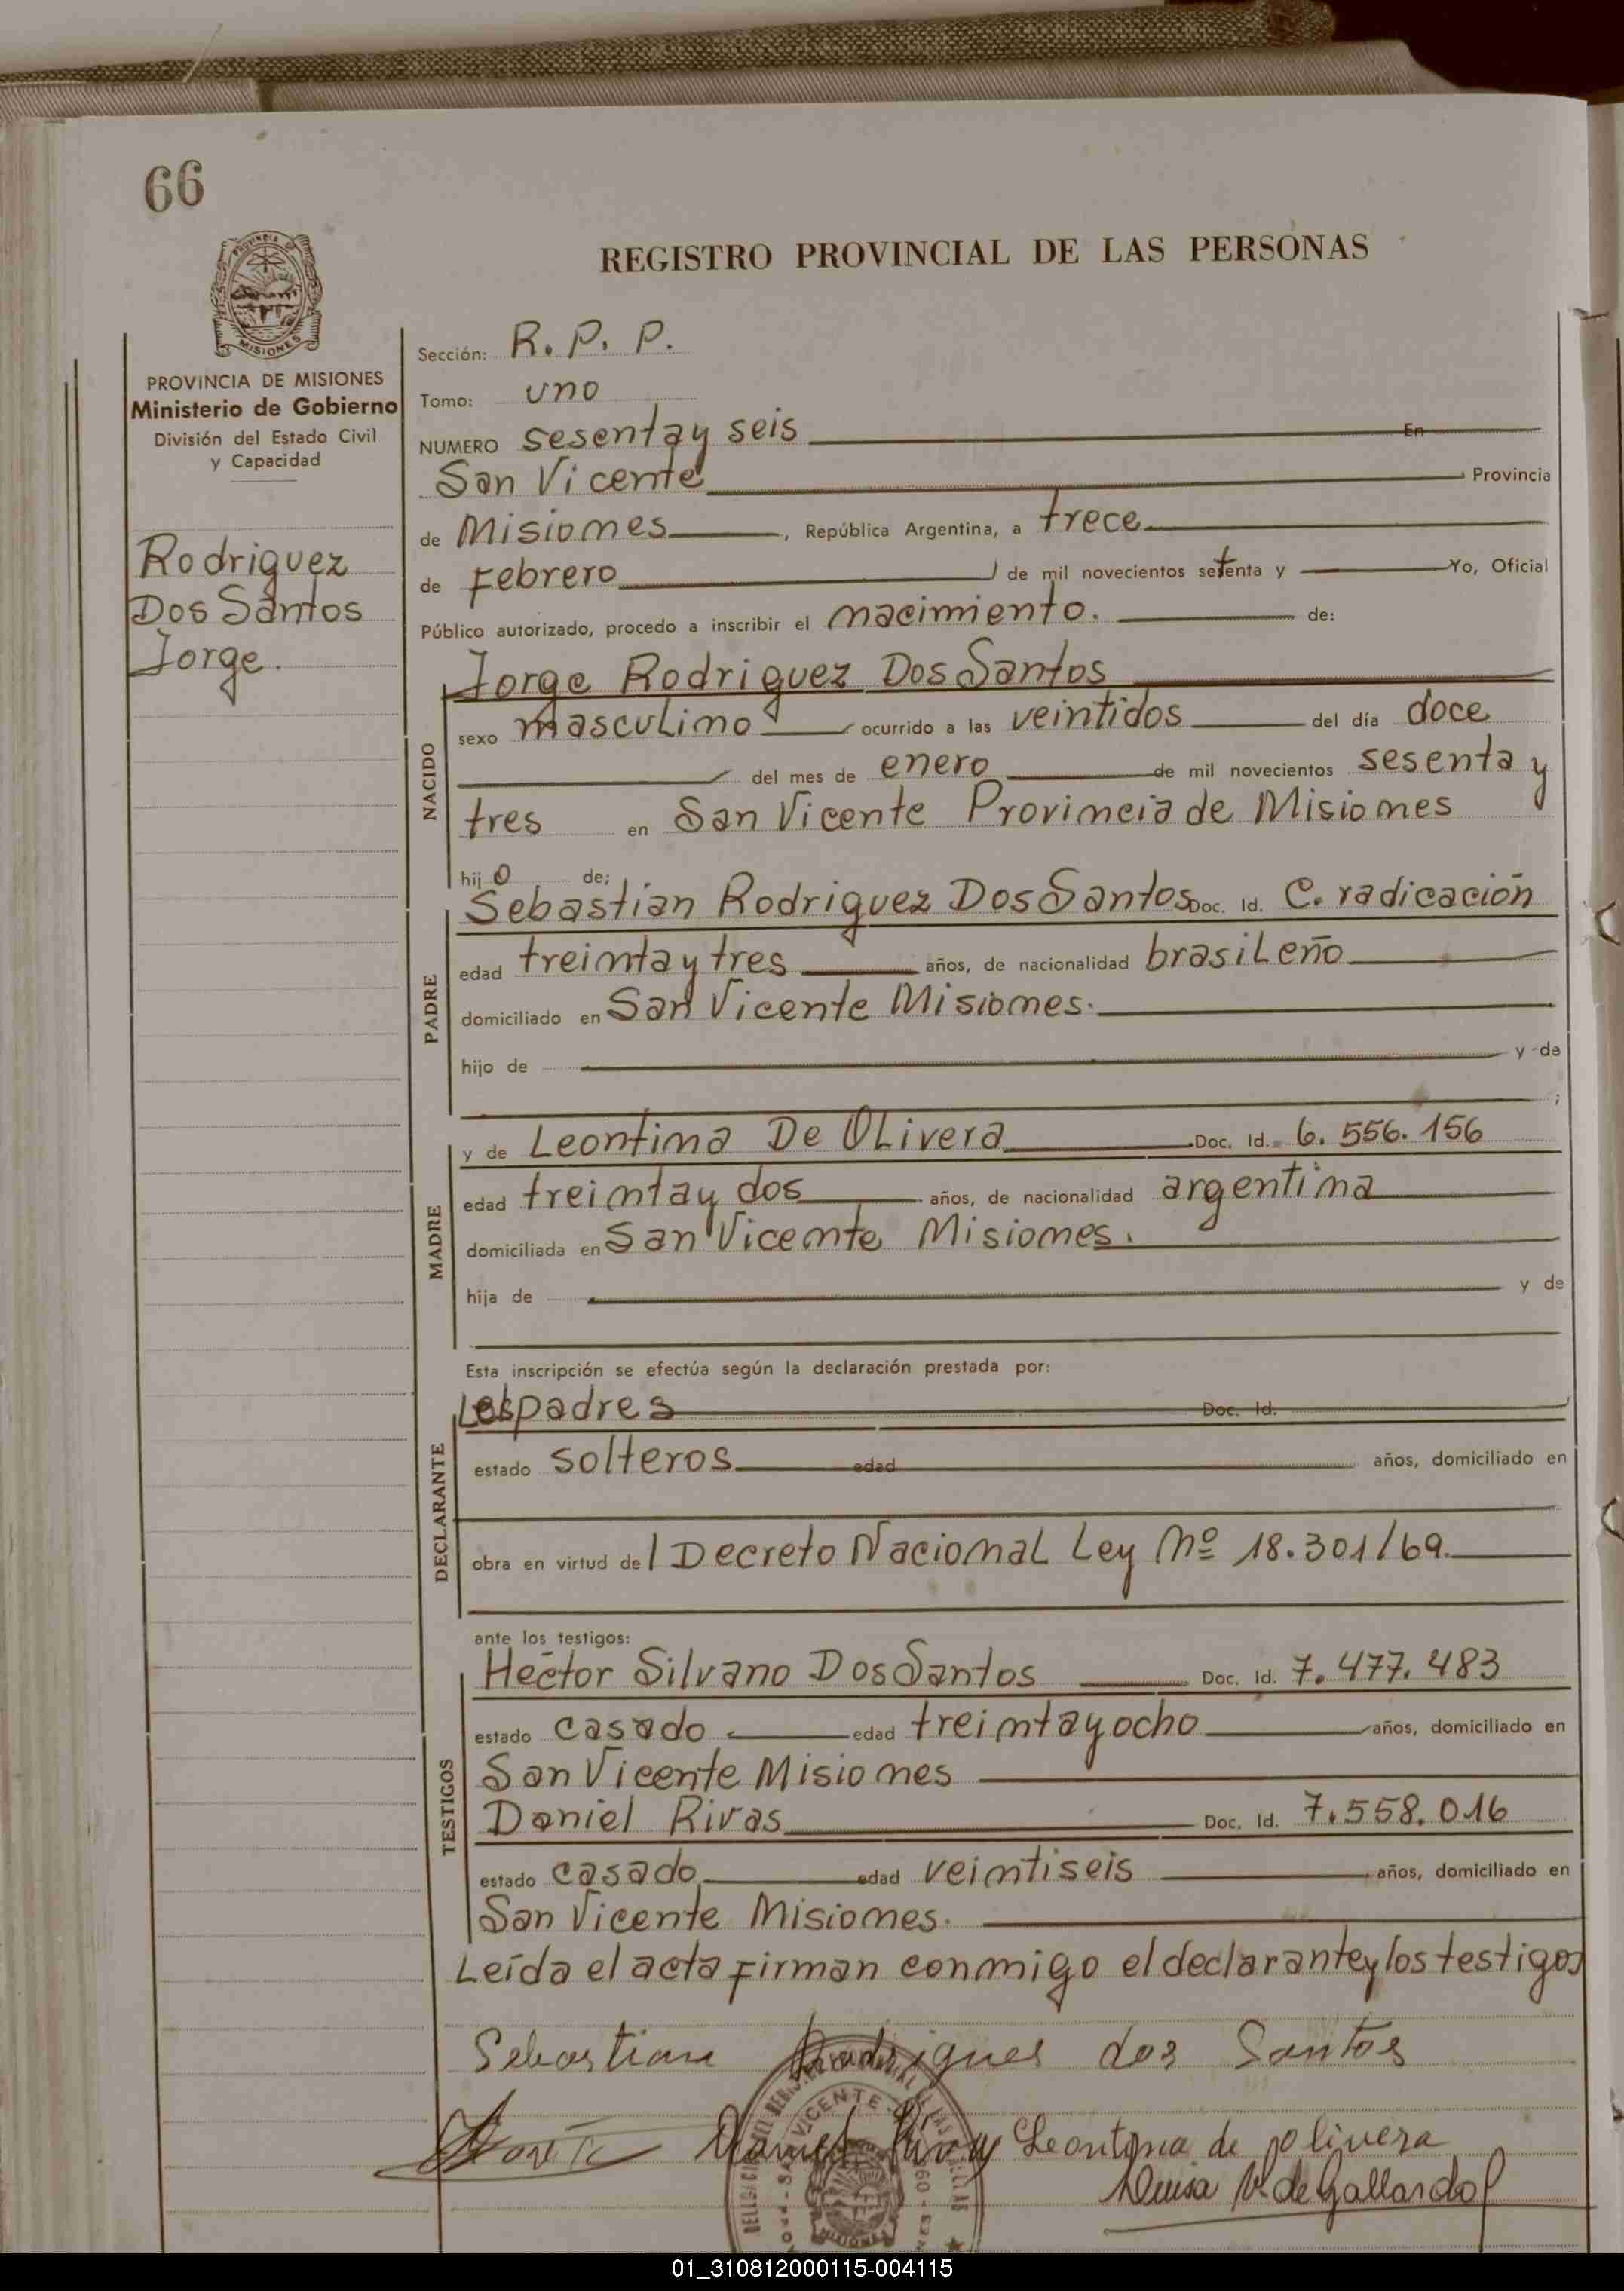 66
REGISTRO PROVINCIAL DE LAS PERSONAS
PROVINCIA DE
MISIONES
PROVINCIA DE MISIONES
Ministerio de Gobierno
División del Estado Civil
y Capacidad
Rodriguez
Dos Santos
Jorge.
Sección: R. P. P.
Tomo: uno
NUMERO sesenta y seis En
San Vicente Provincia
de Misiones, República Argentina, a trece
de Febrero de mil novecientos setenta y Yo, Oficial
Público autorizado, procedo a inscribir el nacimiento. de:
Jorge Rodriguez Dos Santos
NACIDO
sexo masculino ocurrido a las veintidos del día doce
del mes de enero de mil novecientos sesenta y
tres en San Vicente Provincia de Misiones
hijo de;
Sebastián Rodriguez Dos Santos Doc. Id. C. radicación
PADRE
edad treinta y tres años, de nacionalidad brasileño
domiciliado en San Vicente Misiones.
hijo de y de
;
y de Leontina De Olivera Doc. Id. 6.556.156
MADRE
edad treinta y dos años, de nacionalidad argentina
domiciliada en San Vicente Misiones.
hija de y de
Esta inscripción se efectúa según la declaración prestada por:
Los padres Doc. Id.
DECLARANTE
estado solteros edad años, domiciliado en
obra en virtud del Decreto Nacional Ley Nº 18.301/69.
ante los testigos:
Hector Silvano Dos Santos Doc. Id. 7.477.483
TESTIGOS
estado casado edad treinta y ocho años, domiciliado en
San Vicente Misiones
Daniel Rivas Doc. Id. 7.558.016
estado casado edad veintiseis años, domiciliado en
San Vicente Misiones.
Leída el acta firman conmigo el declarante y los testigos
Sebastian Rodrigues dos Santos
Daniel Rivas Leontina de olivera
Luisa V. de Gallardo
VICENTE
MISIONES
01_310812000115-004115